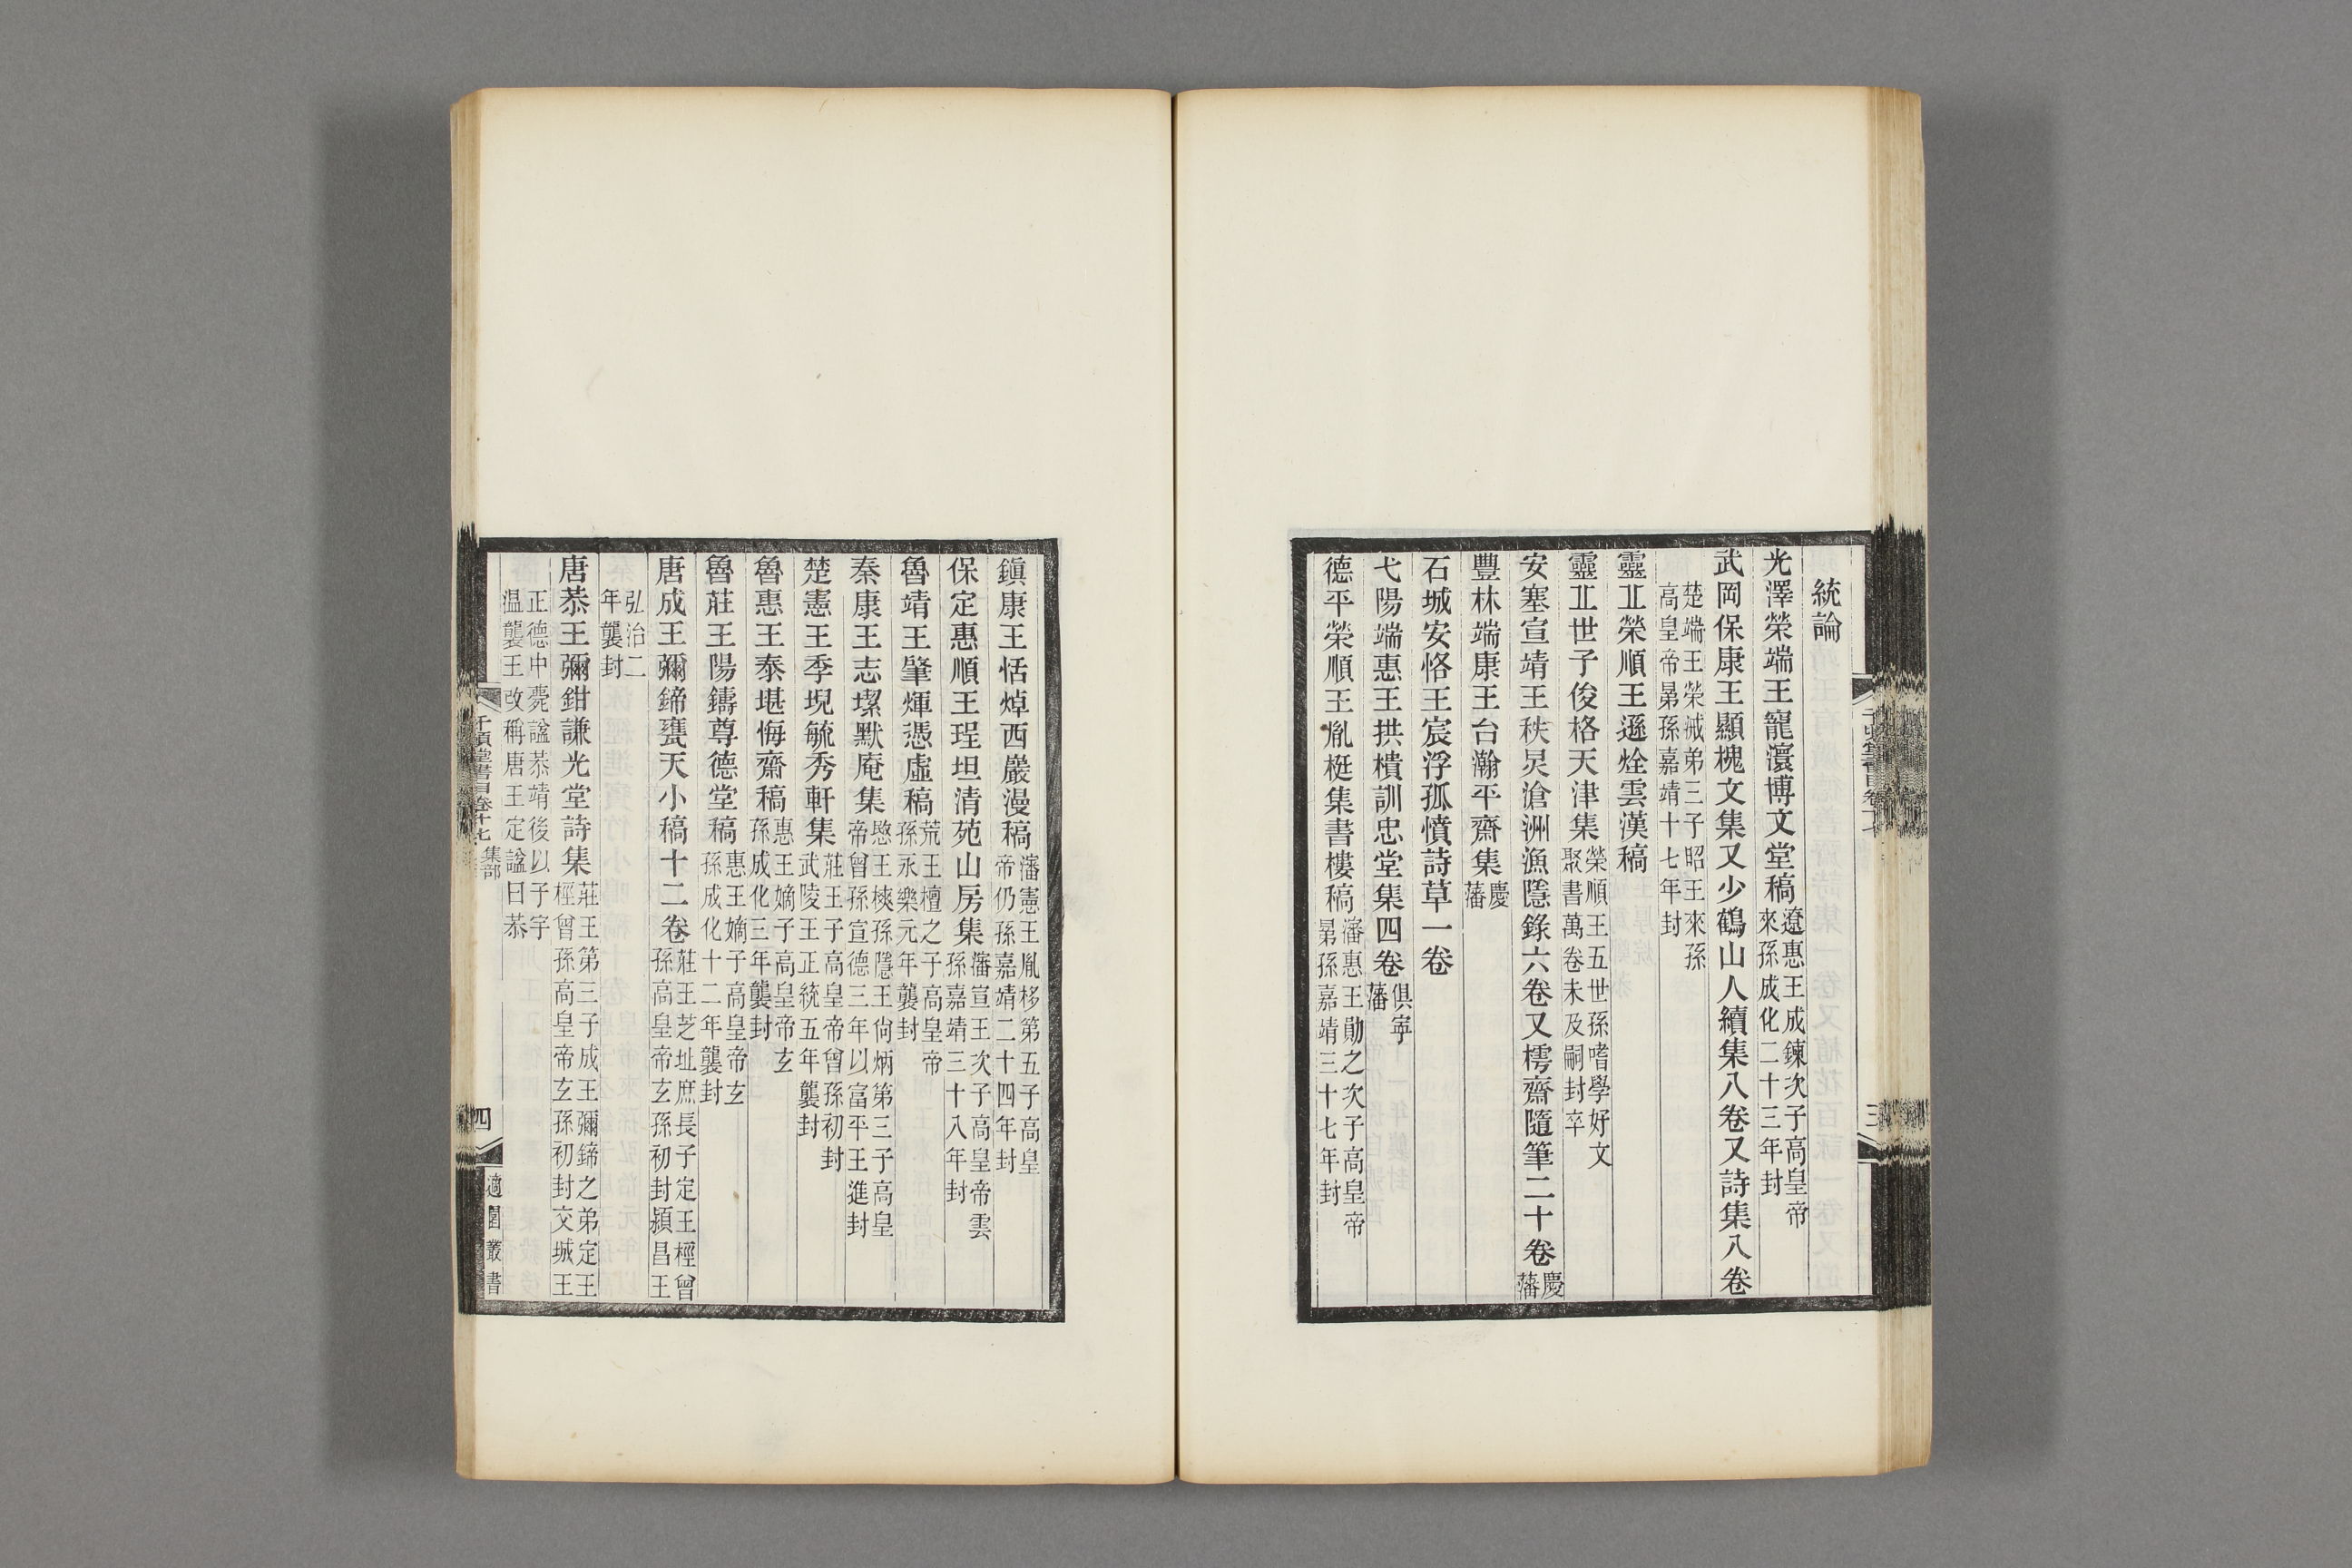 統論
光澤榮端王寵瀤博文堂稿遼惠王成鍊次子高皇帝來孫成化二十三年封
武岡保康王顯槐文集又少鶴山人續集八卷又詩集八卷
楚端王榮㳦弟三子昭王來孫高皇帝晜孫嘉靖十七年封
靈丘榮順王遜烇雲漢稿
靈丘世子俊格天津集榮順王五世孫嗜學好文聚書萬卷未及嗣封卒
安塞宣靖王秩炅滄洲漁隱錄六卷又樗齋隨筆二十卷慶藩
豐林端康王台瀚平齋集慶藩
石城安恪王宸浮孤憤詩草一卷
弋陽端惠王拱樻訓忠堂集四卷俱寜藩
德平榮順王胤梃集書樓稿瀋惠王勛之次子高皇帝晜孫嘉靖三十七年封
鎭康王恬焯西巖漫稿瀋憲王胤栘第五子高皇帝仍孫嘉靖二十四年封
保定惠順王珵坦清苑山房集瀋宣王次子高皇帝雲孫嘉靖三十八年封
魯靖王肇煇憑虛稿荒王檀之子高皇帝孫永樂元年襲封
秦康王志㙳默庵集愍王樉孫隱王尙炳第三子高皇帝曾孫宣德三年以富平王進封
楚憲王季堄毓秀軒集莊王子高皇帝曾孫初封武陵王正統五年襲封
魯惠王泰堪悔齋稿惠王嫡子高皇帝玄孫成化三年襲封
魯莊王陽鑄尊德堂稿惠王嫡子高皇帝玄孫成化十二年襲封
唐成王彌鍗甕天小稿十二卷莊王芝址庶長子定王桱曾孫高皇帝玄孫初封潁昌王
弘治二年襲封
唐恭王彌鉗謙光堂詩集莊王第三子成王彌鍗之弟定王桱曾孫高皇帝玄孫初封交城王
正德中薨諡恭靖後以子宇温襲王改稱唐王定諡曰恭
千頃堂書目卷十七 集部
四
適園叢書